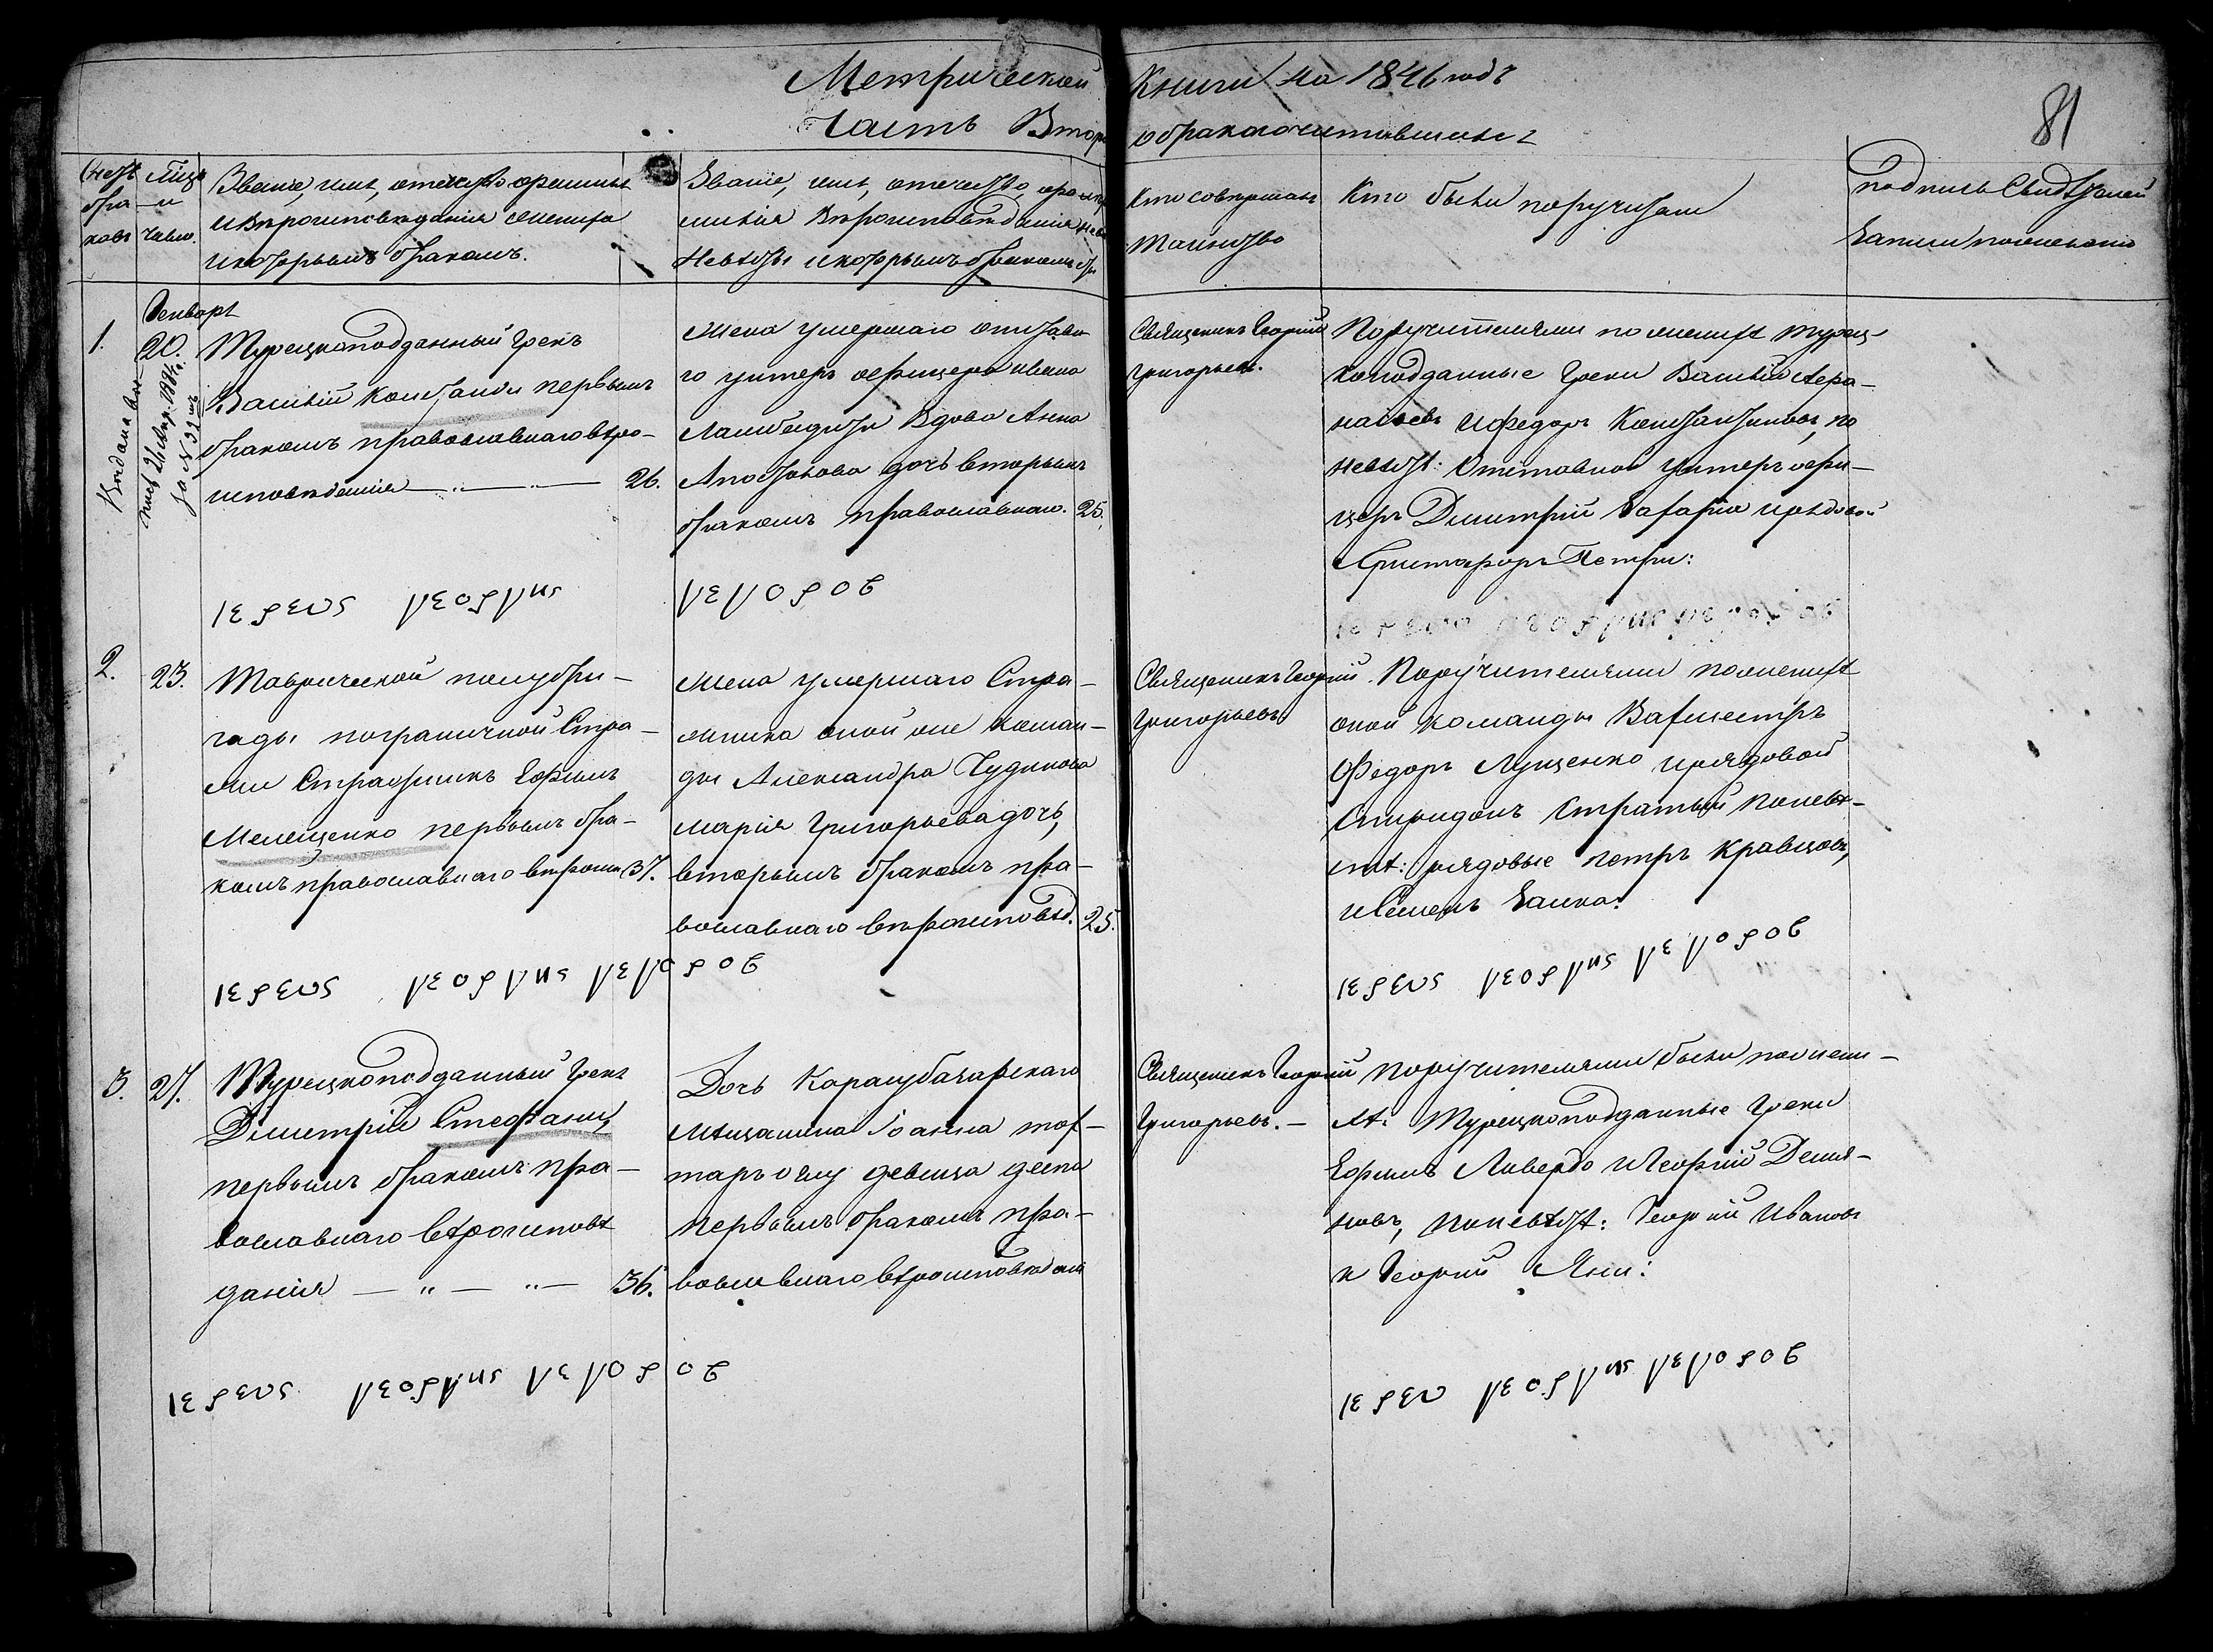 Метрической Книги на 1846 годъ
Часть Втор о бракосочетавшихся
81
Счетъ браковъ
Мѣсяцъ и число.
Званіе, имя, отечество, фамилія
и вѣроисповѣданія жениха
и которымъ бракомъ.
Званіе, имя, отечество, фа
милія вѣроисповѣданія
Невѣсты и которымъ бракомъ
Кто совершалъ
Таинство
Кто были поручители
Подпись Свидѣтелей
Записи по желанію
Генваря
1.
20.
Турецкоподданный Грекъ
Василій Констанди первымъ
бракомъ православнаго вѣро-
исповѣданія 26.
Жена умершаго отставн
го унтеръ офицера Ивана
Вдова Анна
Апостолова дочь вторымъ
бракомъ православнаго. 25.
Священникъ Георгій
Григорьевъ.
Поручителями по женихѣ турец-
коподданные Греки Василій Афа-
насьевъ и Федоръ Константиновъ, по
невѣстѣ: Отставной унтеръ офи-
церъ Димитрій и рядовой
Христофоръ Петри:
2.
23.
Таврической полубри-
гады пограничной Стра-
жи Стражникъ Ефимъ
Мелещенко первымъ бра-
комъ православнаго вѣроисп 37.
Жена умершаго Стра-
жника оной же коман-
ды Александра Чудинова
Марія Григорьева дочь,
вторымъ бракомъ пра-
вославнаго вѣроисповѣд. 25.
Священникъ Георгій
Григорьевъ
Поручителями по женихѣ
оной команды Вахмистръ
Федоръ Луценко и рядовой
Спиридонъ Стратый по невѣ-
стѣ: рядовые Петръ Кравцовъ,
и Семенъ Заика.
3.
27.
Турецкоподданный Грекъ
Димитрій Стефани,
первымъ бракомъ пра-
вославнаго вѣроисповѣ
данія 36.
Дочь Карасубазарскаго
мѣщанина Іоанна
девица
первымъ бракомъ пра-
вославнаго вѣроисповѣданія
Священникъ Георгій
Григорьевъ.
Поручителями были по жени-
хѣ: Турецкоподданные Греки
Ефимъ Ливердо и Георгій Демья-
новъ, по невѣстѣ: Георгій Ивановъ
и Георгій Яни: